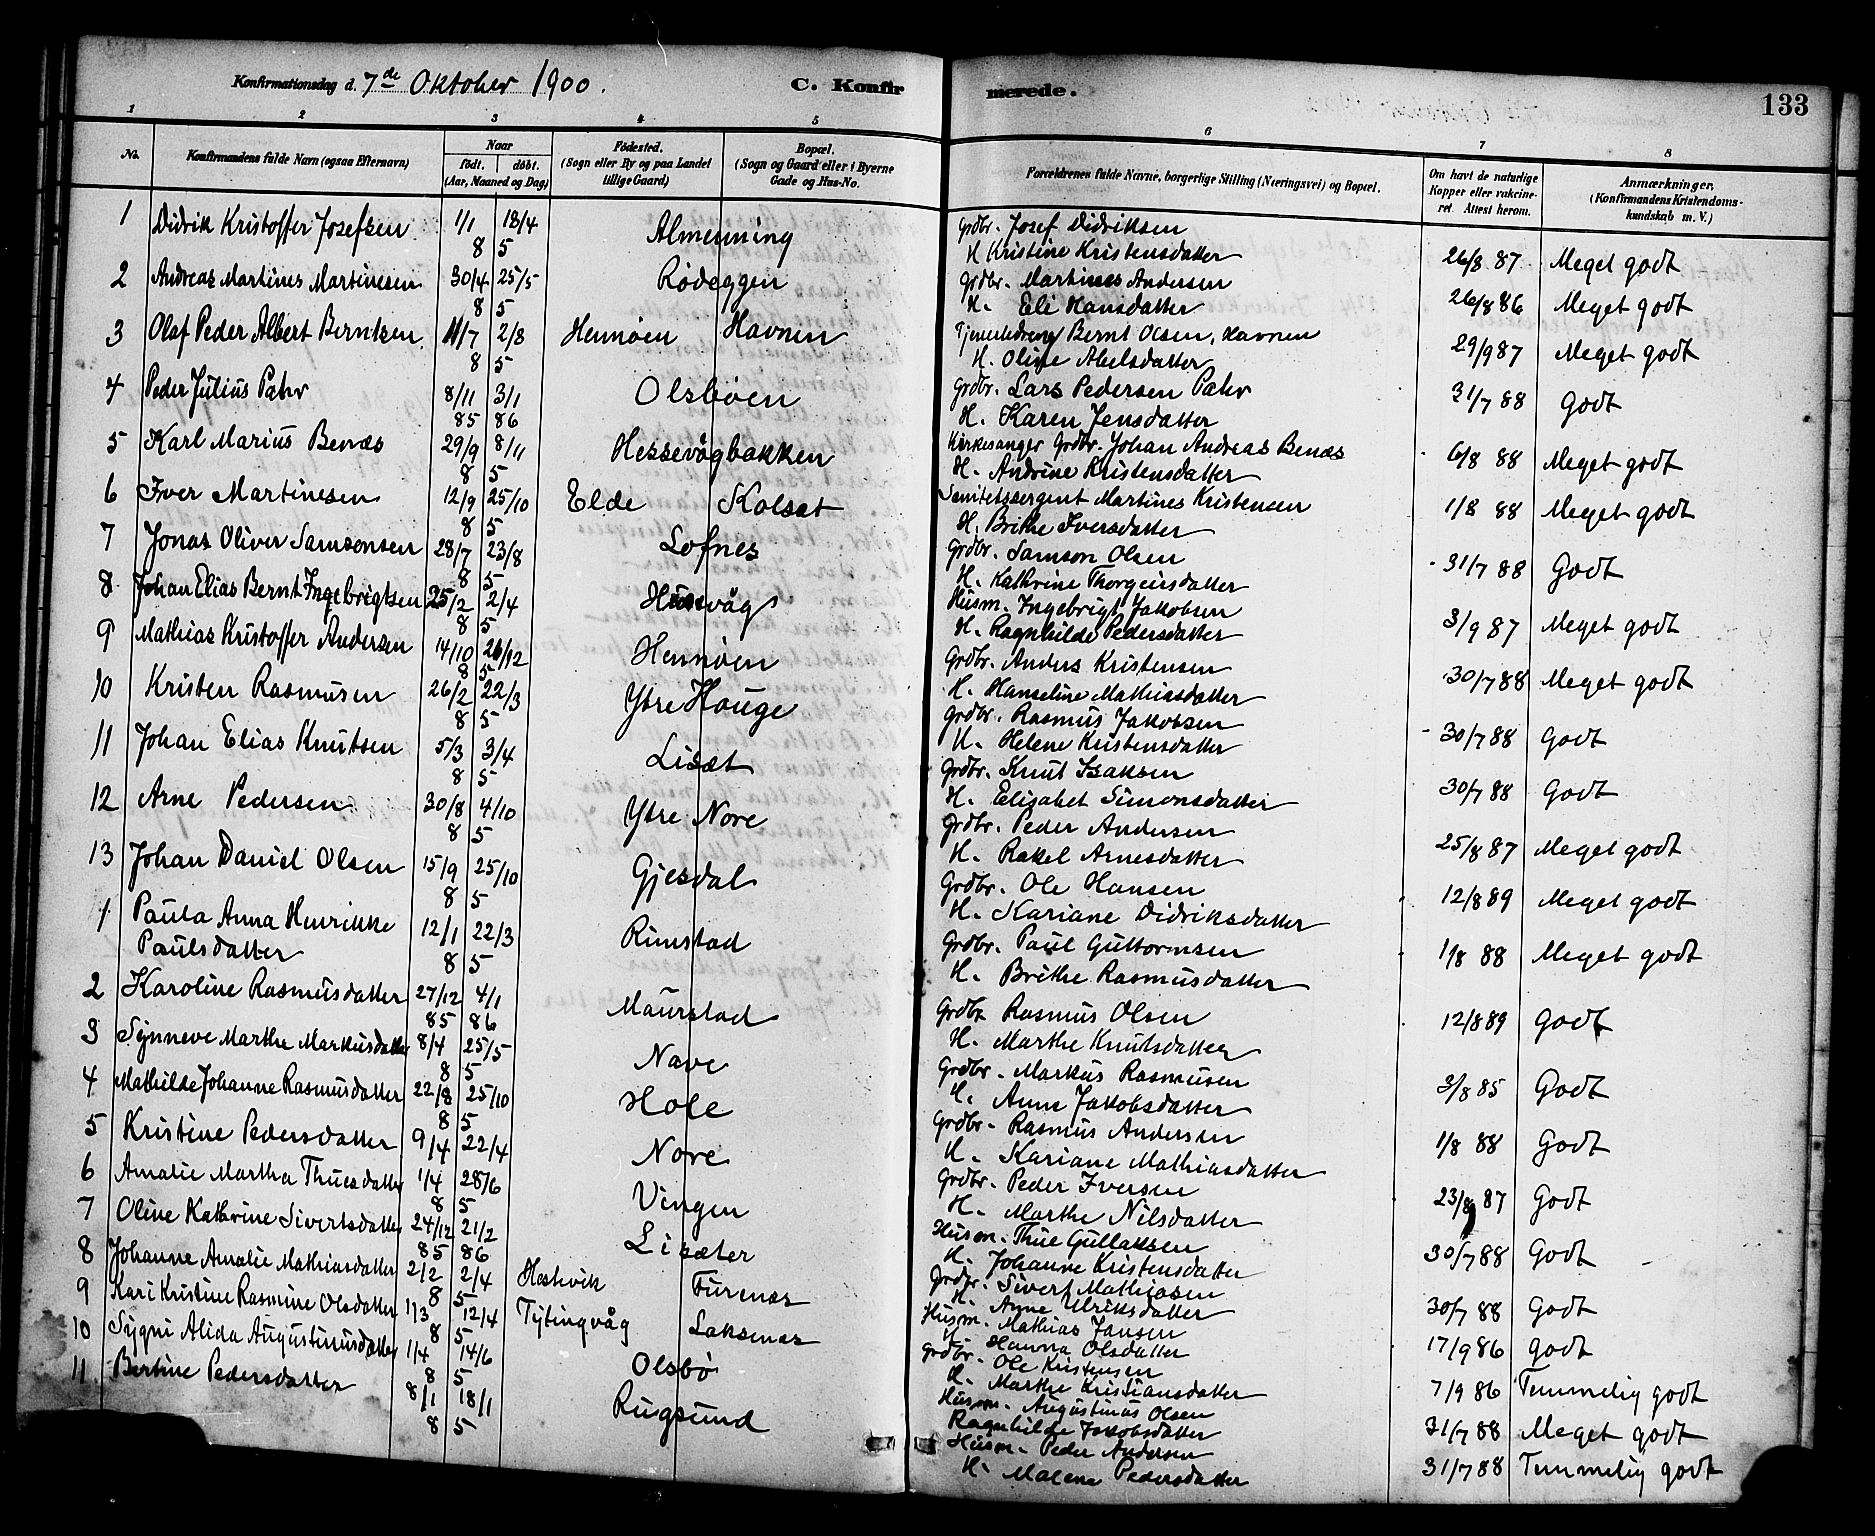 Konfirmationsdag d. 7de Oktober 1900. C. Konfirmerede. 133
1 2 3 4 5 6 7 8
No. Konfirmandens fulde Navn (ogsaa Efternavn) Naar født. døbt. (Aar, Maaned og Dag) Fødested. (Sogn eller By og paa Landet tillige Gaard) Bopæl. (Sogn og Gaard eller i Byerne Gade og Hus-No. Forældrenes fulde Navne, borgerlige Stilling (Næringsvei) og Bopæl. Om havt de naturlige Kopper eller vakcineret. Attest herom. Anmærkninger. (Konfirmandens Kristendomskundskab m. V.)
1 Didrik Kristoffer Josefsen 1/1 13/4 Almenning Grdbr. Josef Didriksen
8 5 H. Kristine Kristensdatter 26/8 87 Meget godt
2 Andreas Martines Martinesen 30/4 25/5 Rødeggen Grdbr. Martines Andersen
8 5 H. Eli Hansdatter 26/8 86 Meget godt
3 Olaf Peder Albert Berntsen 11/7 2/8 Hennøen Havnen Tjenestedreng Bernt Olsen, Havnen
8 5 H. Oline Abelsdatter 29/9 87 Meget godt
4 Peder Julius Pahr 8/11 3/1 Olsbøen Grdbr. Lars Pedersen Pahr
85 86 H. Karen Jensdatter 31/7 88 Godt
5 Karl Marius Benæs 29/9 8/11 Hessevågbakken Kirkesanger Grdbr. Johan Andreas Benæs
8 5 H. Andrine Kristensdatter 6/8 88 Meget godt
6 Iver Martinesen 12/9 25/10 Elde Kolset Sanitetssergent Martines Kristensen
8 5 H. Brithe Iversdatter 1/8 88 Meget godt
7 Jonas Oliver Samsonsen 28/7 23/8 Lofnes Grdbr. Samson Olsen
8 5 H. Kathrine Thorgeirsdatter 31/7 88 Godt
8 Johan Elias Bernt Ingebrigtsen 25/2 2/4 Husevåg Husm. Ingebrigt Jakobsen
8 5 H. Ragnhilde Pedersdatter 3/9 87 Meget godt
9 Mathias Kristoffer Andersen 14/10 26/12 Hennøen Grdbr. Anders Kristensen
8 5 H. Hanseline Mathiasdatter 30/7 88 Meget godt
10 Kristen Rasmusen 26/2 22/3 Ytre Hauge Grdbr. Rasmus Jakobsen
8 5 H. Helene Kristensdatter 30/7 88 Godt
11 Johan Elias Knutsen 5/3 3/4 Lisæt Grdbr. Knut Isaksen
8 5 H. Elisabet Simonsdatter 30/7 88 Godt
12 Arne Pedersen 30/8 4/10 Ytre Nore Grdbr. Peder Andersen
8 5 H. Rakel Arnesdatter 25/8 87 Meget godt
13 Johan Daniel Olsen 15/9 25/10 Gjesdal Grdbr. Ole Hansen
8 5 H. Kariane Didriksdatter 12/8 89 Meget godt
1 Paula Anna Henrikke 12/1 22/3 Rimstad Grdbr. Paul Guttormsen
Paulsdatter 8 5 H. Brithe Rasmusdatter 1/8 88 Meget godt
2 Karoline Rasmusdatter 27/12 4/1 Maurstad Grdbr Rasmus Olsen
85 86 H. Marthe Knutsdatter 12/8 89 Godt
3 Synneve Marthe Markusdatter 8/4 25/5 Nave Grdbr. Markus Rasmusen
8 5 H. Anne Jakobsdatter 3/8 85 Godt
4 Mathilde Johanne Rasmusdatter 22/8 25/10 Hole Grdbr. Rasmus Andersen
8 5 H. Kariane Mathiasdatter 1/8 88 Godt
5 Kristine Pedersdatter 9/4 22/4 Nore Grdbr. Peder Iversen
H. Marthe Nilsdatter 23/8 87 Godt
6 Amalie Martha Thuesdatter 1/4 28/6 Vingen Husm. Thue Gullaksen
8 5 H. Johanne Kristensdatter 30/7 88 Godt
7 Oline Kathrine Sivertsdatter 24/12 21/2 Lisæter Grdbr. Sivert Mathiasen
85 86 H. Anne Ulriksdatter 30/7 88 Godt
8 Johanne Amalie Mathiasdatter 2/2 2/4 Hestevik Furenæs Husm. Mathias Jansen
8 5 H. Hanna Olsdatter 17/9 86 Godt
9 Kari Kristine Rasmine Olsdatter 1/3 12/4 Tytingvåg Laksenæs Grdbr. Ole Kristensen
8 5 H. Marthe Kristiansdatter 7/9 86 Temmelig godt
10 Sygni Alida Augustinusdatter 1/4 14/6 Olsbø Husm. Augustinus Olsen
8 5 Ragnhilde Jakobsdatter 31/7 88 Meget godt
11 Bertine Pedersdatter 8/1 18/1 Rugsund Husm. Peder Andersen
8 5 H. Malene Pedersdatter 31/7 88 Temmelig godt